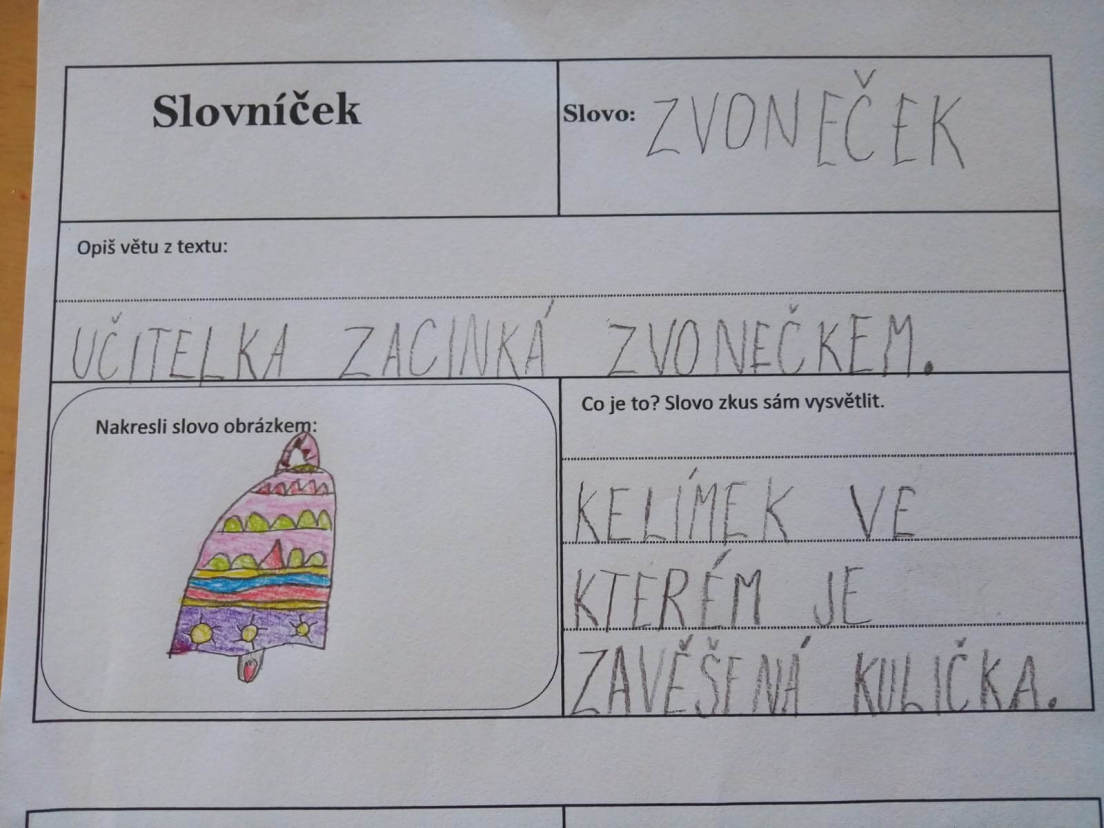 Slovníček
Slovo: ZVONEČEK
Opiš větu z textu:
UČITELKA ZACINKÁ ZVONEČKEM.
Nakresli slovo obrázkem:
Co je to? Slovo zkus sám vysvětlit.
KELÍMEK VE
KTERÉM JE
ZAVĚŠENÁ KULIČKA.